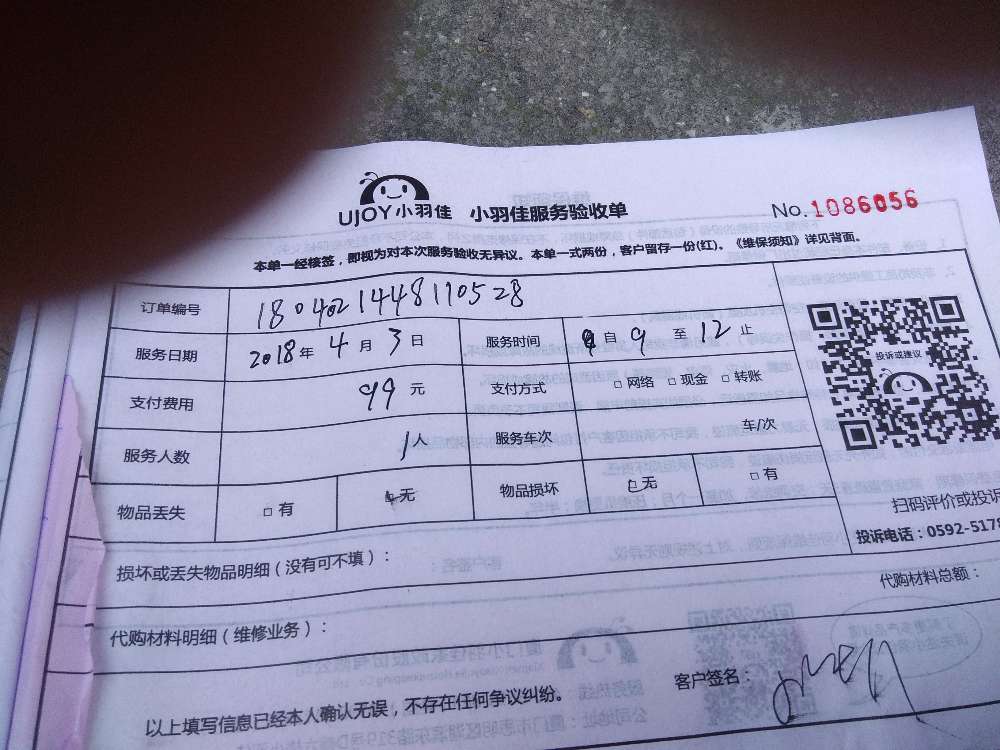 UJOY小羽佳 小羽佳服务验收单 No.1086056
本单一经核签，即视为对本次服务验收无异议。本单一式两份，客户留存一份(红)。《维保须知》详见背面。
订单编号 180421448110528
服务日期 2018年 4月 3日 服务时间 自 9 至 12 止
支付费用 99 元 支付方式 □网络 □现金 □转账
服务人数 1人 服务车次 车/次
物品丢失 □有 □无 物品损坏 □无 □有
投诉或建议
扫码评价或投诉
投诉电话：0592-5178
损坏或丢失物品明细（没有可不填）：
代购材料总额：
代购材料明细（维修业务）：
客户签名：
以上填写信息已经本人确认无误，不存在任何争议纠纷。